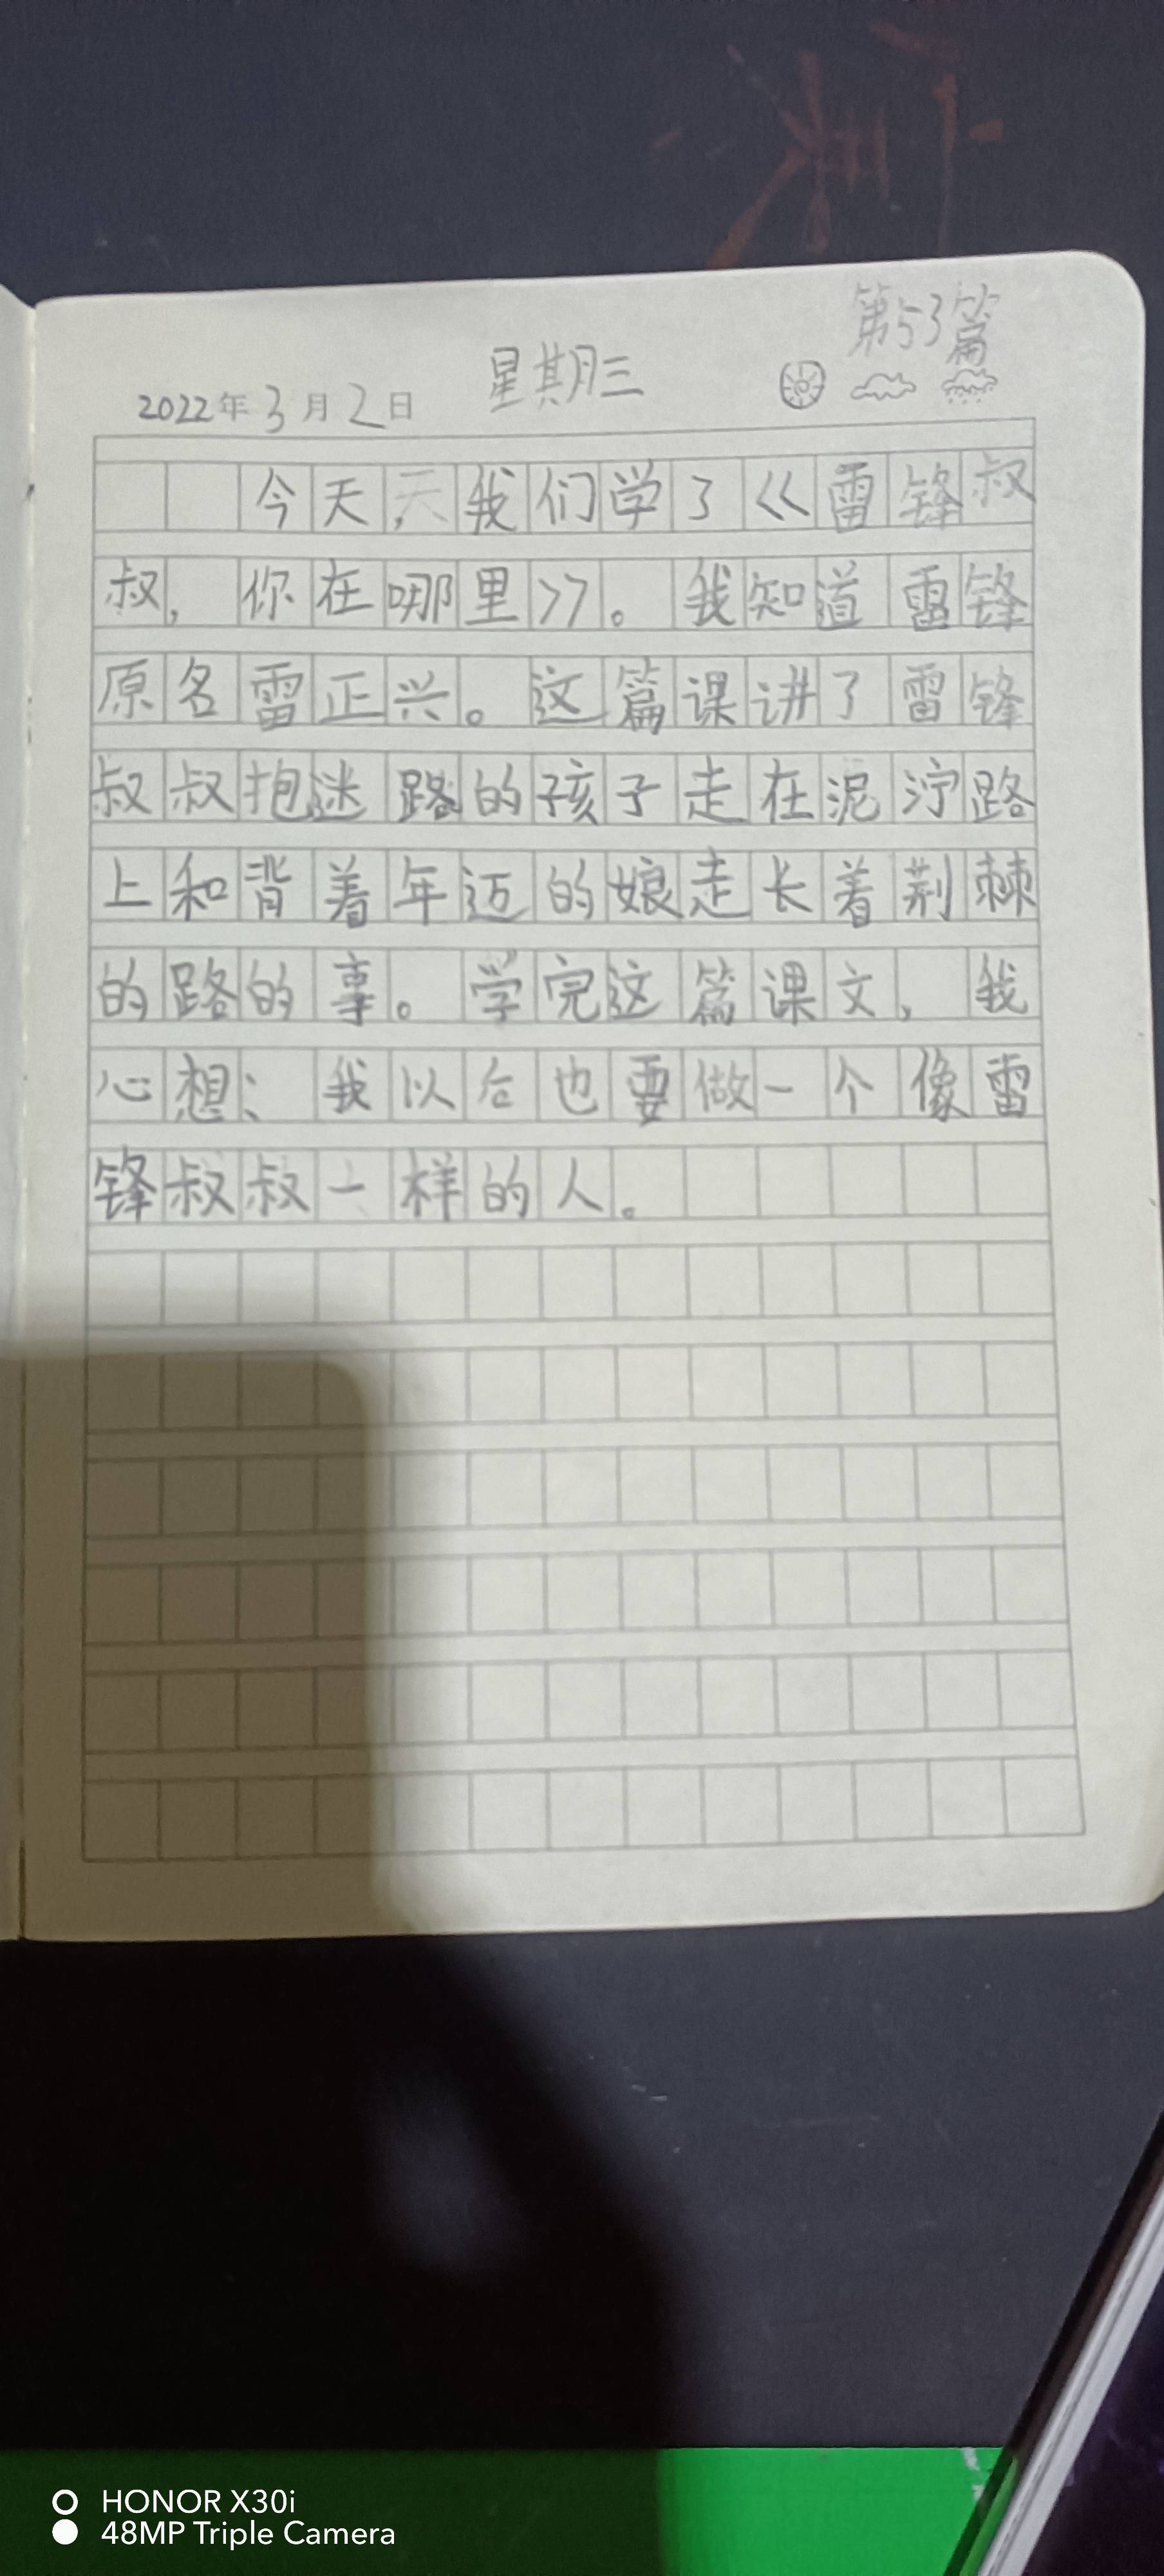 第53篇
2022年3月2日 星期三
今天,我们学了《雷锋叔
叔,你在哪里》。我知道雷锋
原名雷正兴。这篇课讲了雷锋
叔叔抱迷路的孩子走在泥泞路
上和背着年迈的娘走长着荆棘
的路的事。学完这篇课文,我
心想:我以后也要做一个像雷
锋叔叔一样的人。
HONOR X30i
48MP Triple Camera